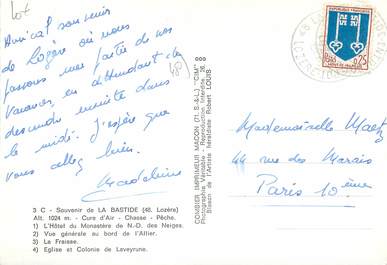 Lot
Amical souvenir
de Lozère où nous
passons une partie de nos
vacances, en attendant de
descendre ensuite dans
le midi. J'espère que
vous allez bien.
Madeleine
48
3 C - Souvenir de LA BASTIDE (48. Lozère)
Alt. 1024 m. - Cure d'Air - Chasse - Pêche.
1) L'Hôtel du Monastère de N.-D. des Neiges.
2) Vue générale au bord de l'Allier.
3) La Fraisse.
4) Eglise et Colonie de Laveyrune.
COMBIER IMPRIMEUR MACON (TL. S.-&-L.) "CIM"
Photographie Véritable - Reproduction Interdite
Blason de l'Artiste Héraldiste Robert LOUIS
REPUBLIQUE FRANÇAISE
0,25
Mademoiselle Maetz
44 rue des Marais
Paris 10ème